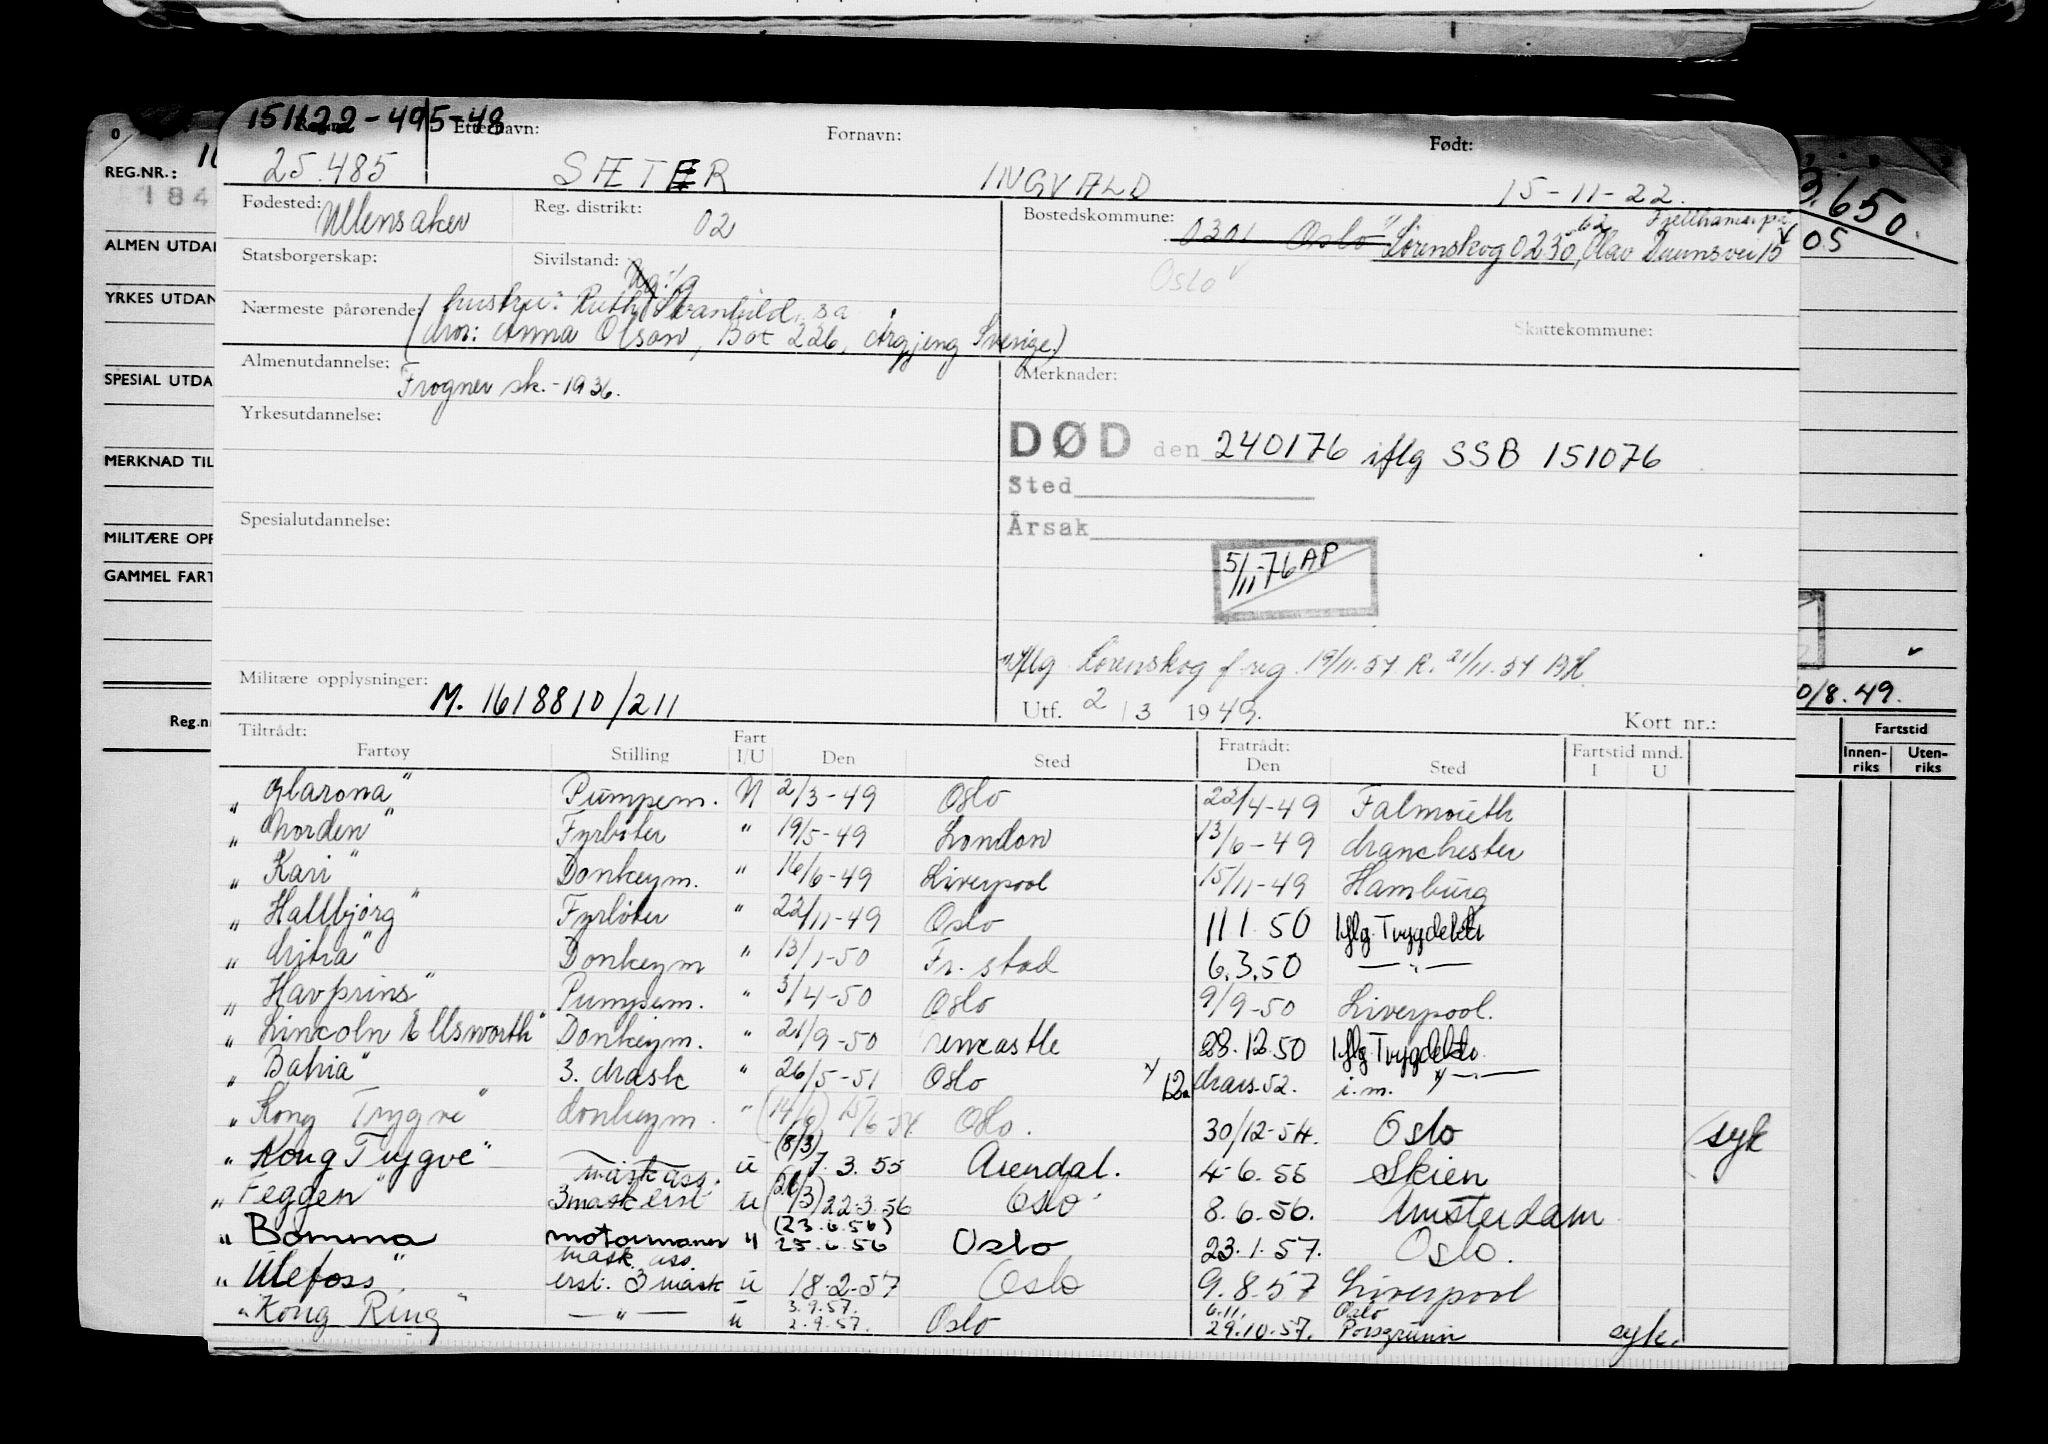 151122-495-48
Etternavn: Fornavn: Født:
25.485 SÆTER INGVALD 15-11-22.
Fødested: Ullensaker Reg. distrikt: 02 Bostedskommune: 0301 Oslo Lørenskog 0230, Olav Duunsvei 15
Oslo
Statsborgerskap: Sivilstand:
Nærmeste pårørende: hustru: Ruth Svanhild, s a
(mor: Anna Olson, Box 226, Årgjeng Sverige.) Skattekommune:
Almenutdannelse: Frogner sk. - 1936. Merknader:
Yrkesutdannelse:
DØD den 240176 iflg SSB 151076
Sted
Årsak
Spesialutdannelse:
5/11-76 AP
Iflg Lørenskog f.reg. 19/11.57 R. 21/11.57 BH
Militære opplysninger: M. 1618810/211 Utf. 2/3 1949. Kort nr.:
Tiltrådt: Fart Fratrådt: Fartstid mnd.
Fartøy Stilling I/U Den Sted Den Sted I U
"Glarona" Pumpem. U 2/3-49 Oslo 22/4-49 Falmouth
"Norden" Fyrbøter " 19/5-49 London 13/6-49 Manchester
"Kari" Donkeym. " 16/6-49 Liverpool 15/11-49 Hamburg
"Hallbjørg" Fyrbøter " 22/11-49 Oslo 11 1. 50 Iflg. Trygdektr
Donkeym " 13/1-50 Fr.stad 6.3.50 — " —
"Havprins" Pumpem. " 3/4-50 Oslo 9/9-50 Liverpool.
"Lincoln Ellsworth" Donkeym. " 21/9-50 Newcastle 28.12.50 Iflg. Trygdektr.
"Bahia" 3. mask " 26/5-51 Oslo mars.52. i.m. — " —
"Kong Trygve" donkeym. " (14/6) 15/6-54 Oslo. 30/12-54. Oslo syk
"Kong Trygve" mask ass. u (8/3) 7.3.55 Arendal. 4-6.55 Skien
"Feggen" 3mask erst u 22.3.56 Oslo 8.6.56. Amsterdam
"Bomma motormann " (23.6.56) 25.6.56 Oslo 23.1.57. Oslo.
"Ulefoss" mask. ass. erst. 3 mask u 18.2.57 Oslo 9.8.57 Liverpool
"Kong Ring" — " — u 3.9.57. 2.9.57. Oslo 6.11. 29.10.57. Oslo Porsgrunn syk.
REG.NR.:
184
ALMEN UTDA
YRKES UTDAN
SPESIAL UTDA
MERKNAD TIL
MILITÆRE OPP
GAMMEL FART
Reg.n
3.650.
05
0/8.49.
Fartstid
Innen-riks Uten-riks